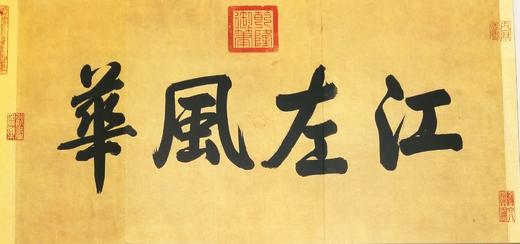 江左風華
乾隆御筆